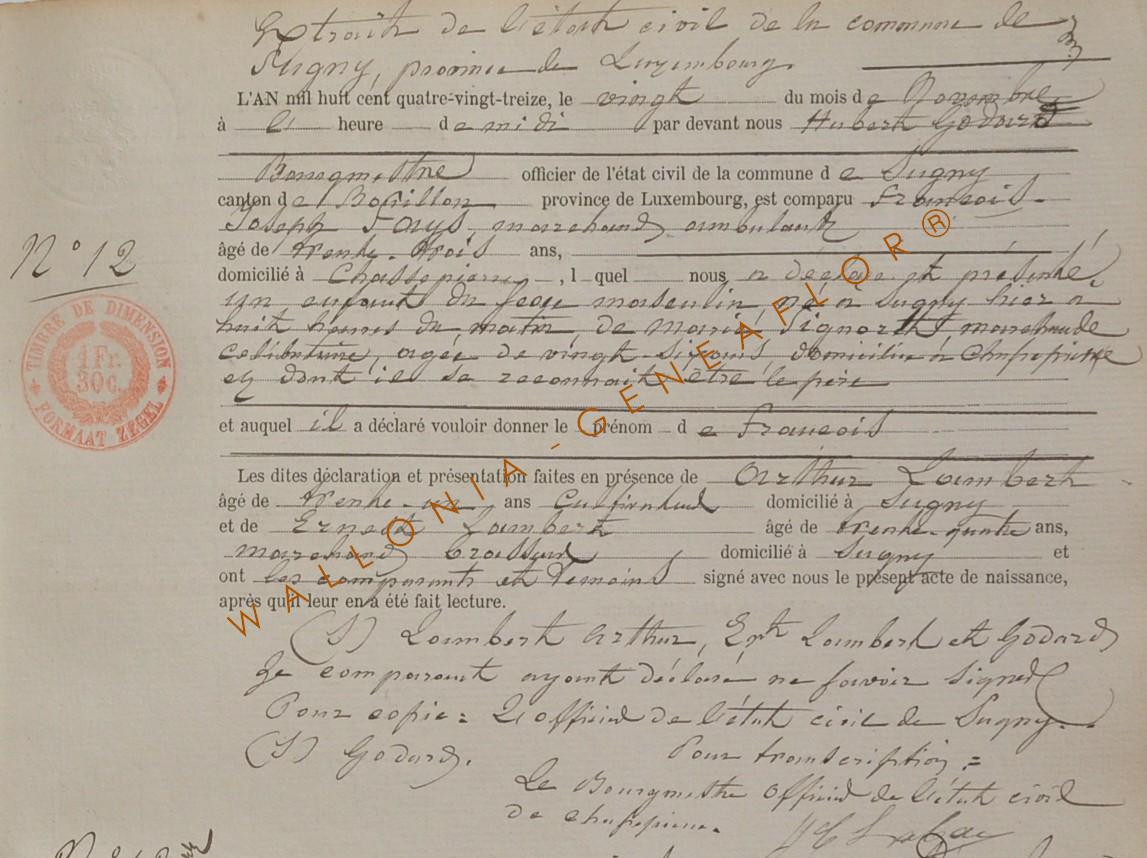 Extrait de l'état civil de la commune de
Sugny, province de Luxembourg.
L'AN mil huit cent quatre-vingt-treize, le vingt du mois de Novembre
à heure de midi par devant nous Hubert Godard
Bourgmestre officier de l'état civil de la commune de Sugny
canton de Bouillon province de Luxembourg, est comparu François-
Joseph Fays, marchand ambulant
N° 12
âgé de trente-trois ans,
domicilié à Chassepierre, lequel nous a déclaré et présenté
un enfant du sexe masculin, né à Sugny hier à
huit heures du matin, de Marie, marchande
célibataire, agée de vingt-six ans, domiciliée à Chassepierre
et dont il se reconnait être le père
et auquel il a déclaré vouloir donner le prénom de François
TIMBRE DE DIMENSION
1 Fr.
30 C.
FORMAAT ZEGEL
Les dites déclaration et présentation faites en présence de Arthur Lambert
âgé de trente-un ans Cultivateur domicilié à Sugny
et de Ernest Lambert âgé de trente-quatre ans,
marchand brasseur domicilié à Sugny et
ont les comparants et témoins signé avec nous le présent acte de naissance,
après qu'il leur en a été fait lecture.
(S) Lambert Arthur, Ert Lambert et Godard
Le comparant ayant déclaré ne savoir signer
Pour copie: L'officier de l'état civil de Sugny.
(S) Godard.
Pour transcription =
Le Bourgmestre Officier de l'état civil
de Chassepierre.
WALLONIA-GENEAFLOR®